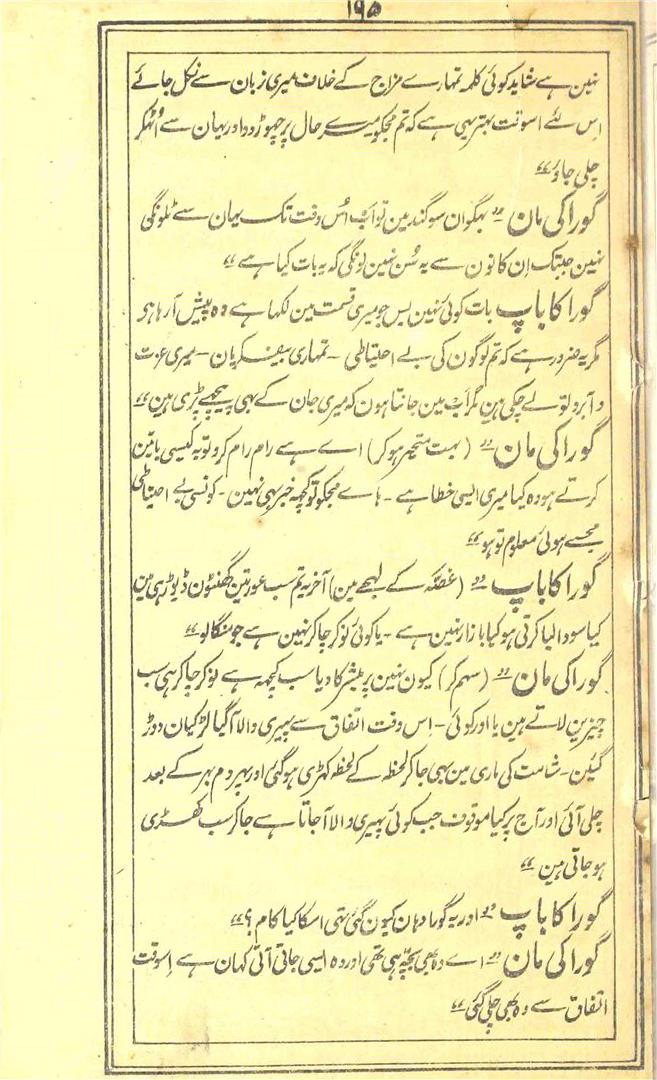 ۱۹۵
نہین ہے شاید کوئی کلمہ تمہارے مزاج کے خلاف میری زبان سے نکل جائے
اِس لئے اسوقت بہتر یہی ہے کہ تم مجکو میرے حال پر چھوڑ دو اور یہان سے اُٹھکر
چلی جاؤ ‘‘
گورا کی مان ’’ بھگوان سوگند مین تو اَب اُس وقت تک یہان سے ٹلونگی
نہین جبتک اِن کانون سے یہ سُن نہین لونگی کہ یہ بات کیا ہے ‘‘
گورا کا باپ بات کوئی نہین بس جو میری قسمت مین لکھا ہے وہ پیش آرہا ہی
مگر یہ ضرور ہے کہ تم لوگون کی بے احتیاطی ۔ تمہاری بیفکریان ۔ میری عزت
و آبرو تو لے چکی ہین مگر اَب مین جانتا ہون کہ میری جان کے بھی پیچھے پڑی ہین ‘‘
گورا کی مان ’’ (بہت متحیر ہو کر) اے ہے رام رام کرو توبہ کیسی باتین
کرتے ہو وہ کیا میری ایسی خطا ہے ۔ ہاے مجکو تو کچھ خبر بھی نہین ۔ کونسی بے احتیاطی
مجھسے ہوئی معلوم تو ہو ‘‘
گورا کا باپ ’’ (غصّہ کے لہجے مین) آخر یہ تم سب عورتین گھنٹون ڈیوڑہی مین
کیا سودا لیا کرتی ہو کیا بازار نہین ہے ۔ یا کوئی نوکر چاکر نہین ہے جو منگا لو ‘‘
گورا کی مان ’’ (سہم کر) کیون نہین پرمیشر کا دیا سب کچھ ہے نوکر چاکر ہی سب
چیزین لاتے ہین یا اور کوئی ۔ اِس وقت اتفاق سے پھیری والا آگیا لڑکیان دوڑ
گئین ۔ شامت کی ماری مین بھی جا کر لحظہ کے لحظہ کھڑی ہو گئی اور پھر دم بھر کے بعد
چلی آئی اور آج پر کیا موقوف جب کوئی پھیری والا آجاتا ہے جا کر سب کھڑی
ہو جاتی ہین ‘‘
گورا کا باپ ’’ اور یہ گورا وہان کیون گئی تھی اسکا کیا کام ؟ ‘‘
گورا کی مان ’’ اے وہ بھی بچّہ ہی تھی اور وہ ایسی جاتی آتی کہان ہے اِسوقت
اتفاق سے وہ بھی چلی گئی ‘‘